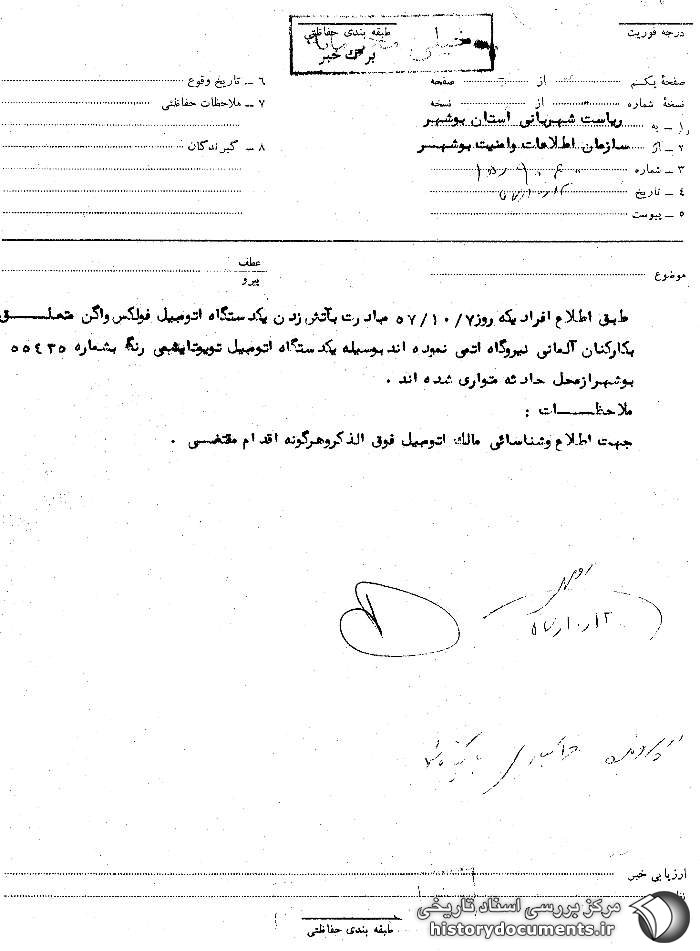 درجه فوریت
طبقه بندی حفاظتی
خیلی
برگ خبر
صفحهٔ یکم از صفحه
نسخهٔ شماره از نسخه
۱ ــ به ریاست شهربانی استان بوشهر
۲ ــ از سازمان اطلاعات وامنیت بوشهر
۳ ــ شماره
۴ ــ تاریخ
۵ ــ پیوست
۶ ــ تاریخ وقوع
۷ ــ ملاحظات حفاظتی
۸ ــ گیرندگان
موضوع
عطف
پیرو
طبق اطلاع افراد یکه روز ۵۷/۱۰/۷ مبادرت بآتش زدن یکدستگاه اتومبیل فولکس واگن متعلق
بکارکنان آلمانی نیروگاه اتمی نموده اند بوسیله یکدستگاه اتومبیل تویوتایشمی رنگ بشماره ۵۵۴۳۵
بوشهرازمحل حادثه متواری شده اند .
ملاحظات :
جهت اطلاع وشناسائی مالك اتومبیل فوق الذکروهرگونه اقدام مقتضی .
ارزیابی خبر
طبقه بندی حفاظتی
مرکز بررسی اسناد تاریخی
historydocuments.ir